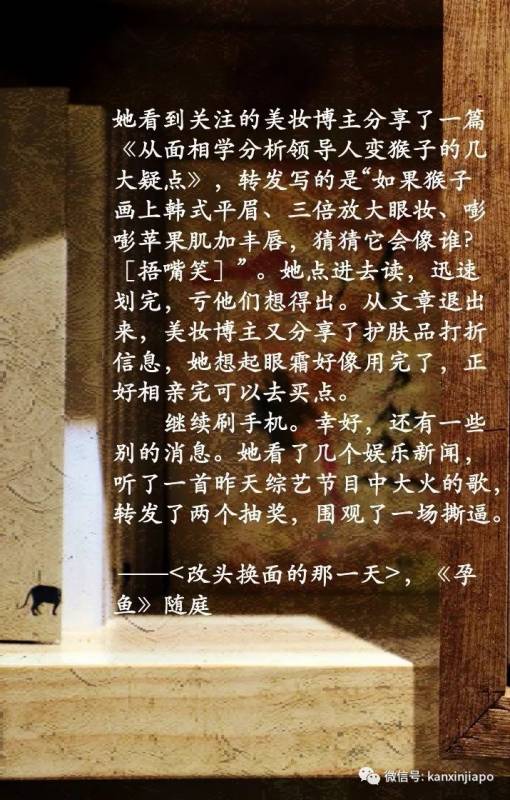 她看到关注的美妆博主分享了一篇
《从面相学分析领导人变猴子的几
大疑点》，转发写的是“如果猴子
画上韩式平眉、三倍放大眼妆、嘭
嘭苹果肌加丰唇，猜猜它会像谁？
［捂嘴笑］”。她点进去读，迅速
划完，亏他们想得出。从文章退出
来，美妆博主又分享了护肤品打折
信息，她想起眼霜好像用完了，正
好相亲完可以去买点。
继续刷手机。幸好，还有一些
别的消息。她看了几个娱乐新闻，
听了一首昨天综艺节目中大火的歌，
转发了两个抽奖，围观了一场撕逼。
——<改头换面的那一天>，《孕
鱼》随庭
微信号: kanxinjiapo